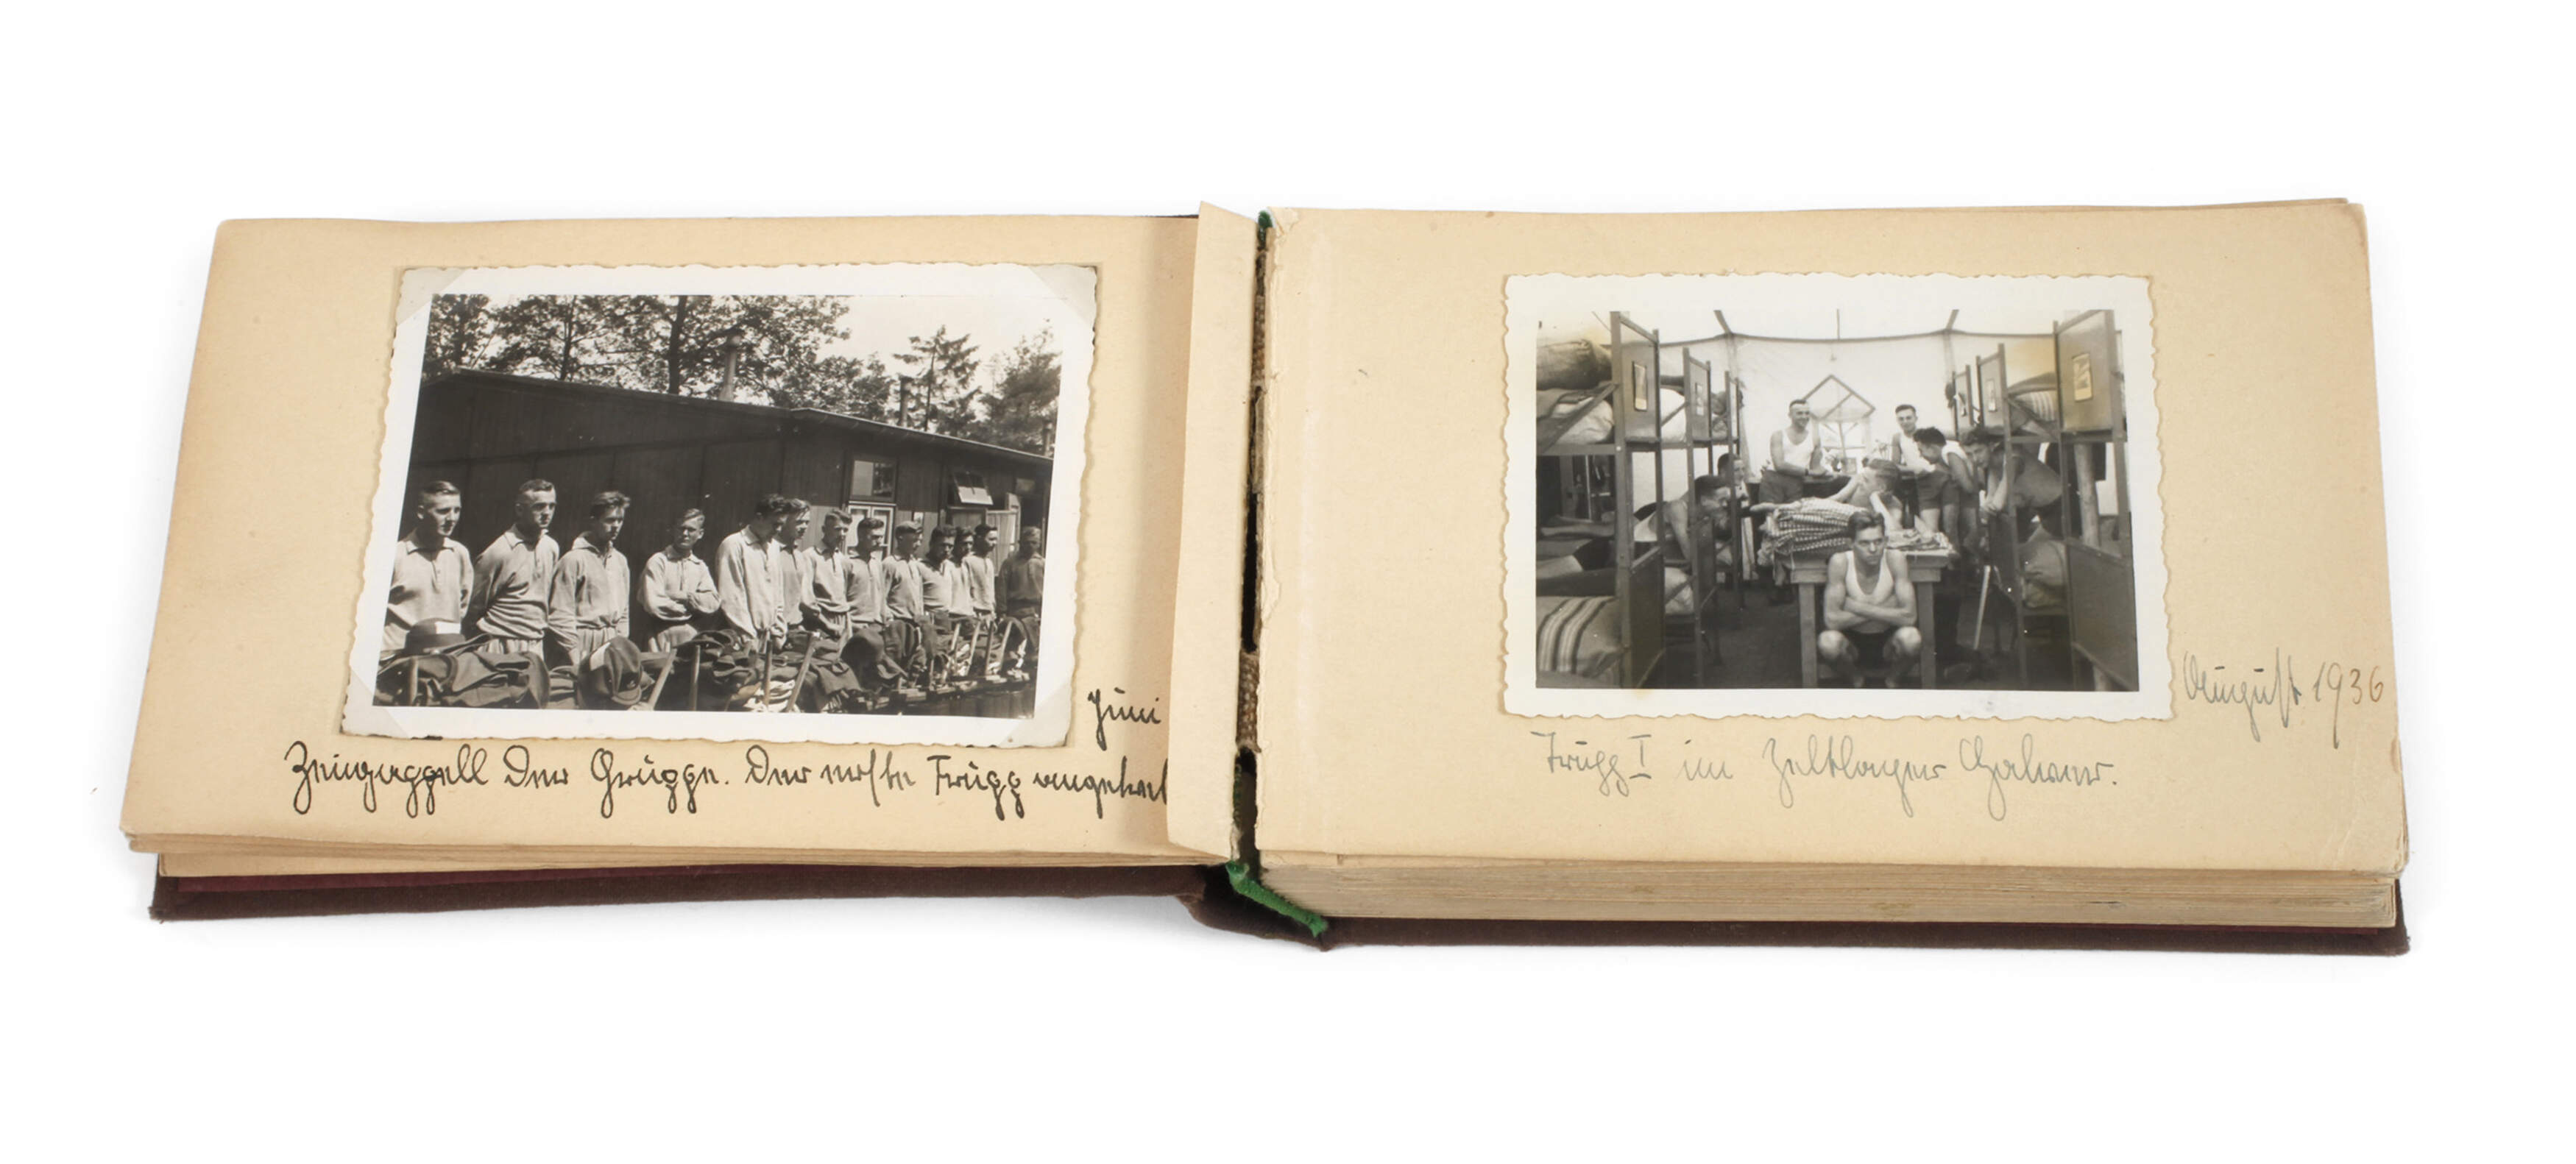 Juni
Zeugappell der Gruppe. Der erste Trupp angetret
August 1936
Trupp I im Zeltlager